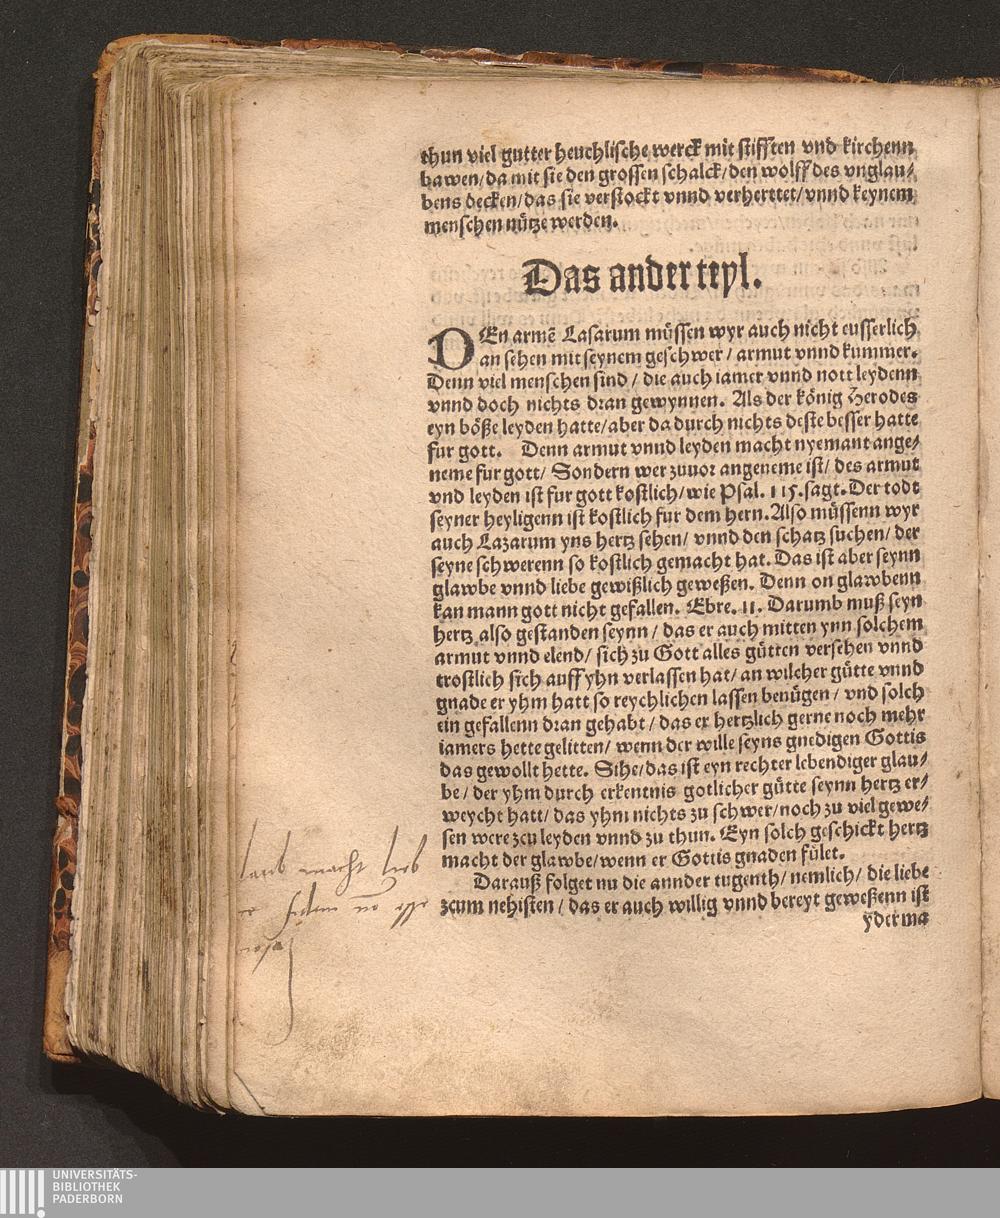 thun viel gutter heuchlische werck mit stifften vnd kirchenn
bawen/da mit sie den grossen schalck/den wolff des vnglau/
bens decken/das sie verstockt vnnd verherttet/vnnd keynem
menschen nütze werden.
Das ander teyl.
DEn armē Lasarum müssen wyr auch nicht eusserlich
an sehen mit seynem geschwer / armut vnnd kummer.
Denn viel menschen sind / die auch iamer vnnd nott leydenn
vnnd doch nichts dran gewynnen. Als der könig Herodes
eyn böße leyden hatte/aber da durch nichts deste besser hatte
fur gott. Denn armut vnnd leyden macht nyemant ange/
neme fur gott/ Sondern wer zuuor angeneme ist/ des armut
vnd leyden ist fur gott kostlich/wie Psal. 115.sagt.Der todt
seyner heyligenn ist kostlich fur dem hern.Also müssenn wyr
auch Lazarum yns hertz sehen/ vnnd den schatz suchen/ der
seyne schwerenn so kostlich gemacht hat. Das ist aber seynn
glawbe vnnd liebe gewißlich geweßen. Denn on glawbenn
kan mann gott nicht gefallen. Ebre. 11. Darumb muß seyn
hertz also gestanden seynn / das er auch mitten ynn solchem
armut vnnd elend/ sich zu Gott alles gütten versehen vnnd
trostlich sich auff yhn verlassen hat/ an wilcher gütte vnnd
gnade er yhm hatt so reychlichen lassen benügen / vnd solch
ein gefallenn dran gehabt / das er hertzlich gerne noch mehr
iamers hette gelitten/ wenn der wille seyns gnedigen Gottis
das gewollt hette. Sihe/das ist eyn rechter lebendiger glau/
be / der yhm durch erkentnis gotlicher gütte seynn hertz er/
weycht hatt/ das yhm nichts zu schwer/noch zu viel gewe/
sen were zcu leyden vnnd zu thun. Eyn solch geschickt hertz
macht der glawbe/wenn er Gottis gnaden fület.
Darauß folget nu die annder tugenth/ nemlich/ die liebe
zcum nehisten / das er auch willig vnnd bereyt geweßenn ist
yderma
macht
UNIVERSITÄTS-
BIBLIOTHEK
PADERBORN